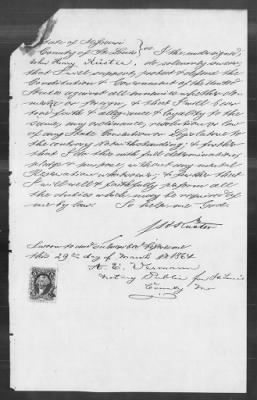 State of Missouri
County of St. Louis } ss I the undersigned
John Henry Kuster, do solemnly swear,
that I will support, protect & defend the
Constitution & Government of the United
States against all enemies whether do-
mestic or foreign, & that I will bear
true faith & allegiance & loyalty to the
same, any ordinance, resolution or law
of any State Convention or Legislature to
the contrary notwithstanding, & further
that I do this with full determination,
pledge & purpose, without any mental
Reservation whatsoever, & further that
I will well & faithfully perform all
the duties which may be required of
me by law. So help me God.
Sworn to and subscribed before me
this 29th day of March 1864
Notary Public for St Louis
County Mo